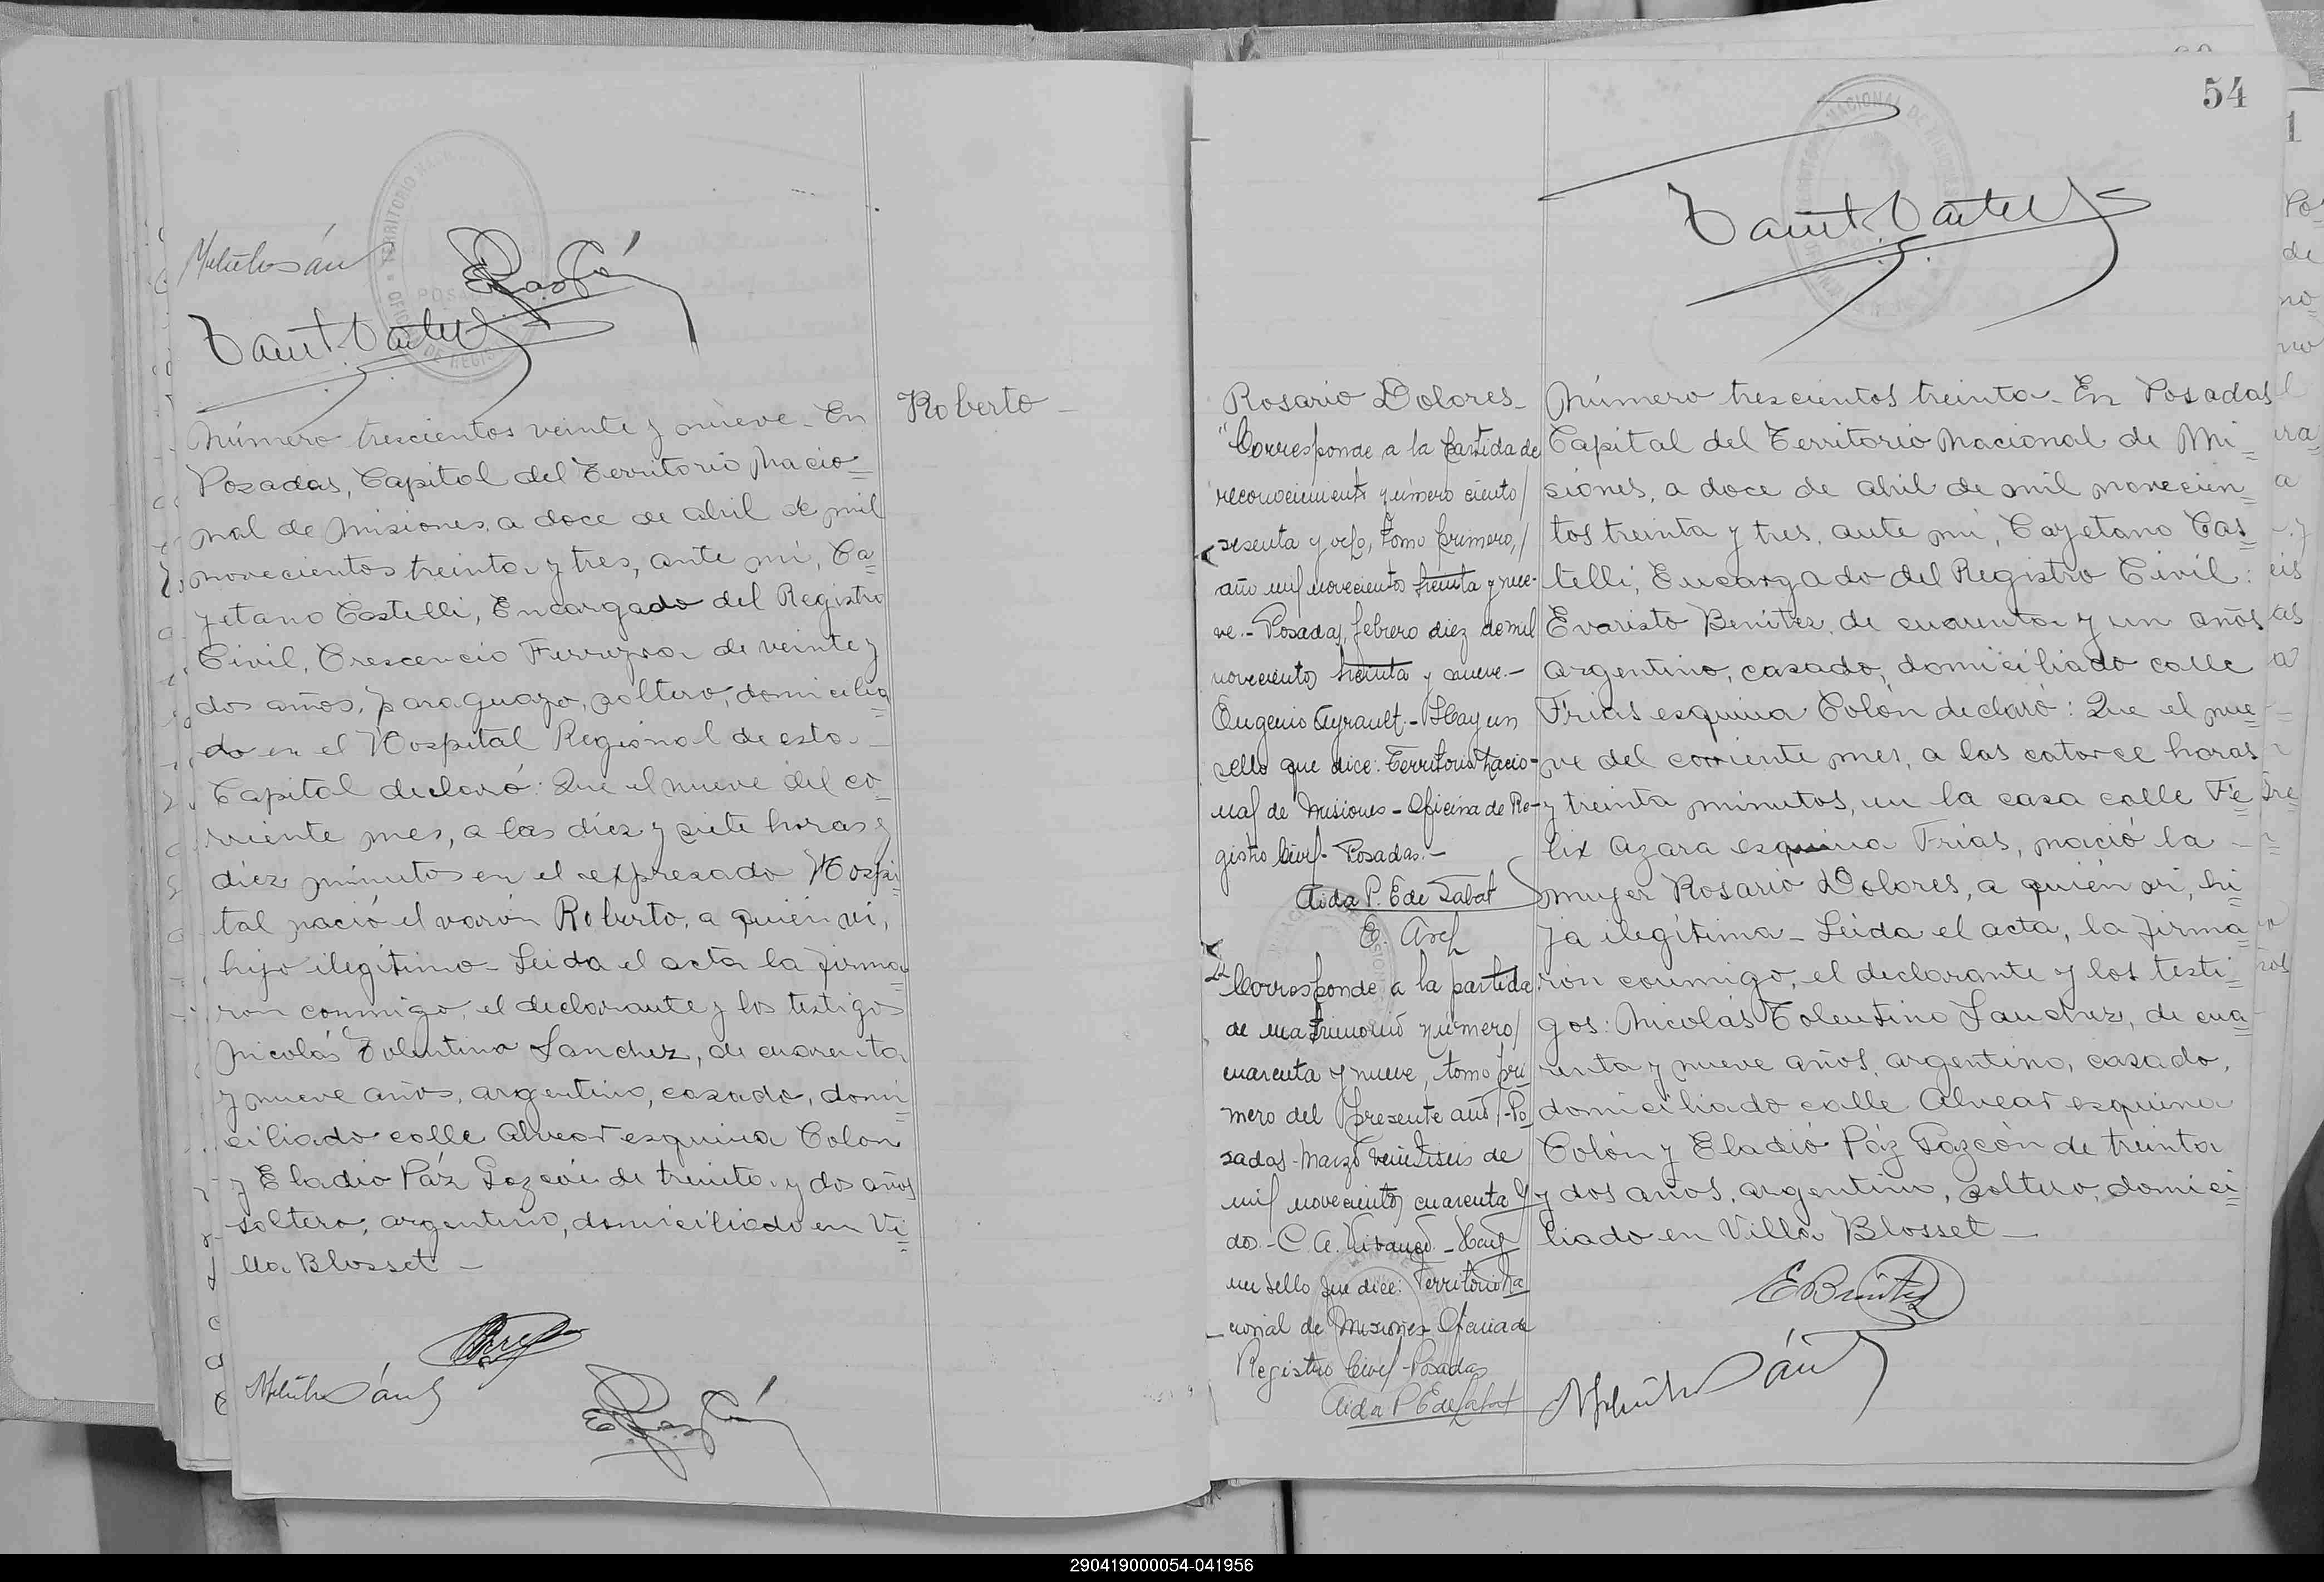 Roberto
Número trescientos veinte y nueve - En
Posadas, Capital del Territorio Nacio=
nal de Misiones, a doce de abril de mil
novecientos treinta y tres, ante mi, Ca=
yetano Castelli, Encargado del Registro
Civil, Crescencio Ferreyra de veinte y
dos años, paraguayo, soltero, domicilia=
do en el Hospital Regional de esta
Capital declaró: Que el nueve del co=
rriente mes, a las diez y siete horas y
diez minutos en el expresado Hospi=
tal nació el varón Roberto, a quién vi,
hijo ilegítimo - Leida el acta la firma=
ron conmigo, el declarante y los testigos
Nicolás Tolentino Sanchez, de cuarenta
y nueve años, argentino, casado, domi=
ciliado calle Alvear esquina Colon
y Eladio Páz Gazcón de treinta y dos años
soltero, argentino, domiciliado en Vi=
lla Blosset -
54
Rosario Dolores -
"Corresponde a la partida de
reconocimiento número ciento/
sesenta y ocho, tomo primero,/
año mil novecientos treinta y nue-
ve.- Posadas, febrero diez de mil
novecientos treinta y nueve.-
Eugenio Ayrault - Hay un
sello que dice: Territorio Nacio-
nal de Misiones - Oficina de Re-
gistro Civil - Posadas.-
Aida P. E de Sabat
"Corresponde a la partida
de matrimonio número/
cuarenta y nueve, tomo pri=
mero del presente año/- Po=
sadas - Marzo veintiseis de
mil novecientos cuarenta y
dos - C. A. - Hay
un sello que dice: Territorio Na
cional de Misiones - Oficina de
Registro Civil - Posadas
Aida P E de Sabat
Número trescientos treinta - En Posadas
Capital del Territorio Nacional de Mi=
siones, a doce de abril de mil novecien=
tos treinta y tres, ante mi, Cayetano Cas=
telli, Encargado del Registro Civil:
Evaristo Benitez, de cuarenta y un años
argentino, casado, domiciliado calle
Frias esquina Colón declaró: Que el nue=
ve del corriente mes, a las catorce horas
y treinta minutos, en la casa calle Fé=
lix Azara esquina Frias, nació la -
mujer Rosario Dolores, a quién vi, hi=
ja ilegítima - Leida el acta, la firma=
ron conmigo, el declarante y los testi=
gos: Nicolás Tolentino Sanchez, de cua=
renta y nueve años, argentino, casado,
domiciliado calle Alvear esquina
Colón y Eladio Páz Gazcón de treinta
y dos años, argentino, soltero, domici=
liado en Villa Blosset -
E Benitez
290419000054-041956